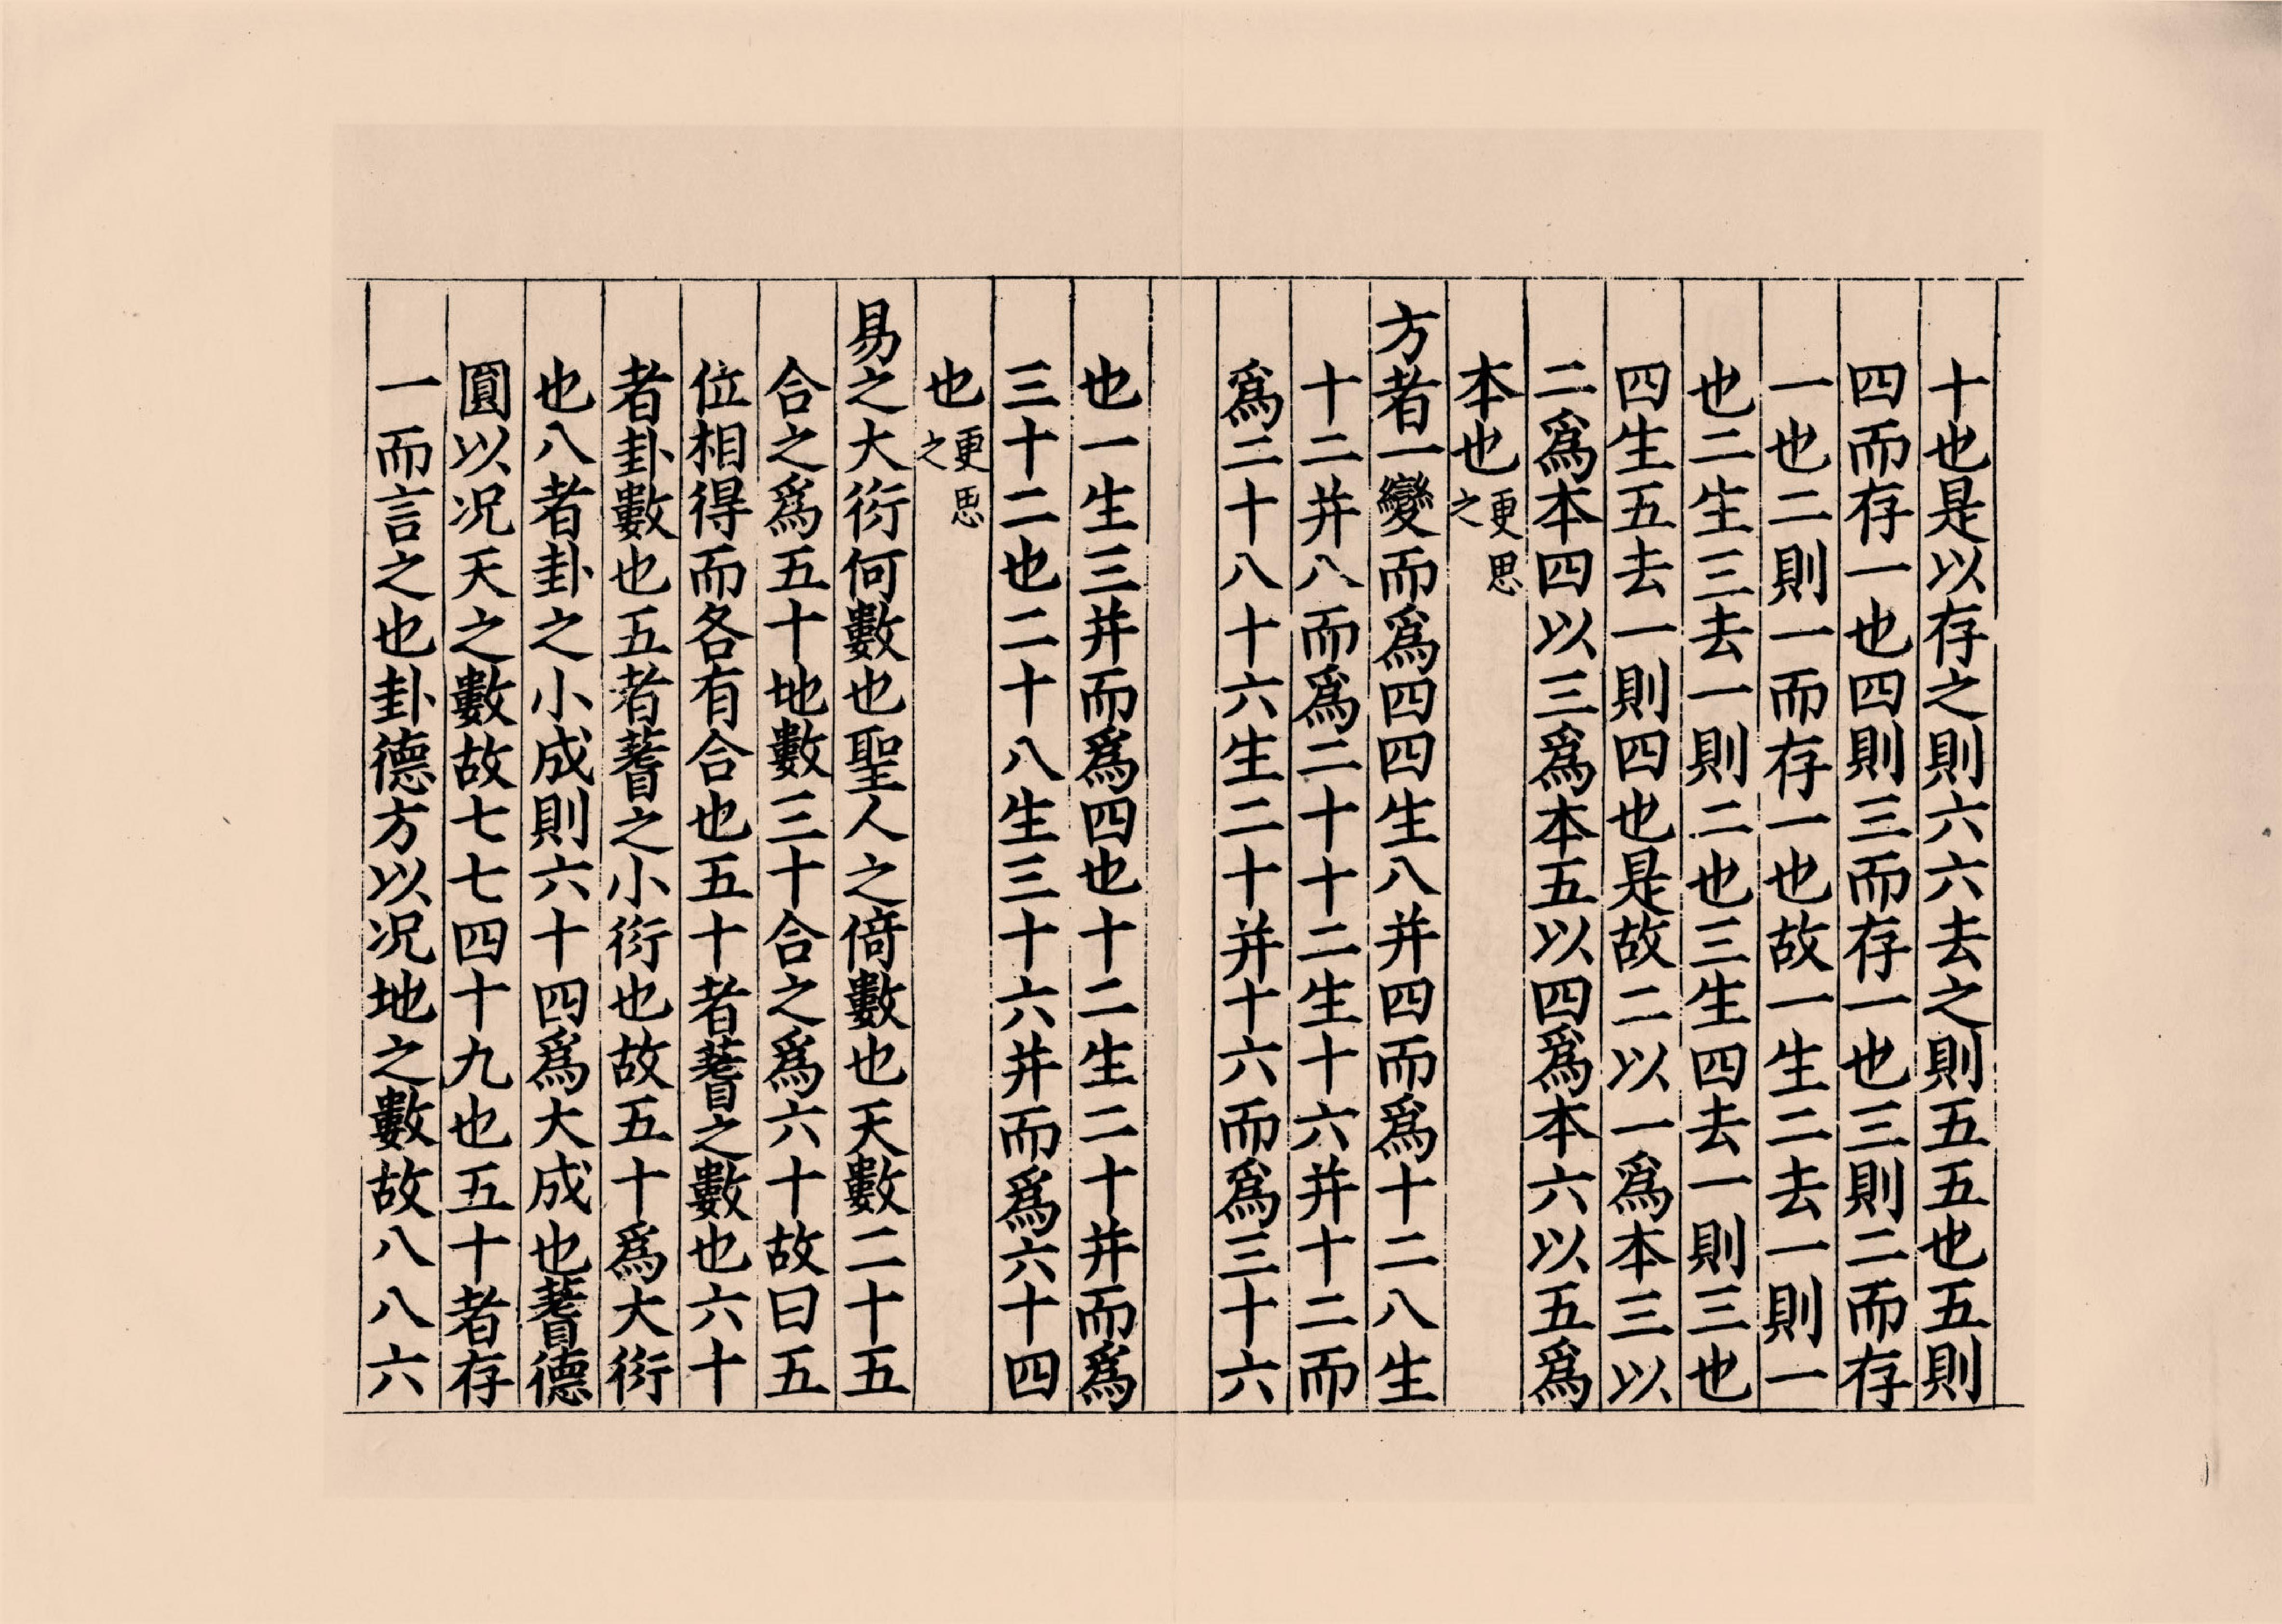 十也是以存之則六六去之則五五也五則
四而存一也四則三而存一也三則二而存
一也二則一而存一也故一生二去一則一
也二生三去一則二也三生四去一則三也
四生五去一則四也是故二以一爲本三以
二爲本四以三爲本五以四爲本六以五爲
本也更思之
方者一變而爲四四生八并四而爲十二八生
十二并八而爲二十十二生十六并十二而
爲二十八十六生二十并十六而爲三十六
也一生三并而爲四也十二生二十并而爲
三十二也二十八生三十六并而爲六十四
也更思之
易之大衍何數也聖人之倚數也天數二十五
合之爲五十地數三十合之爲六十故曰五
位相得而各有合也五十者蓍之數也六十
者卦數也五者蓍之小衍也故五十爲大衍
也八者卦之小成則六十四爲大成也蓍德
圓以况天之數故七七四十九也五十者存
一而言之也卦德方以况地之數故八八六